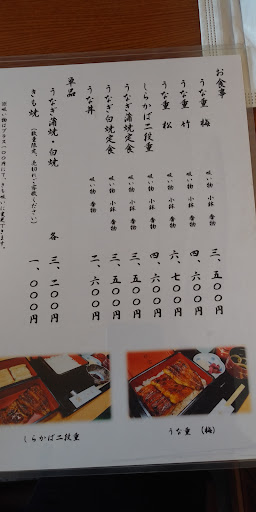 お食事
うな重 梅 吸い物 小鉢 香物 三、五〇〇円
うな重 竹 吸い物 小鉢 香物 四、六〇〇円
うな重 松 吸い物 小鉢 香物 六、七〇〇円
しらかば二段重 吸い物 小鉢 香物 四、六〇〇円
うなぎ蒲焼定食 吸い物 小鉢 香物 三、五〇〇円
うなぎ白焼定食 吸い物 小鉢 香物 三、五〇〇円
うな丼 吸い物 香物 二、六〇〇円
単品
うなぎ蒲焼・白焼 各 三、二〇〇円
きも焼（数量限定、売切れご容赦ください） 一、〇〇〇円
※吸い物はプラス一〇〇円にて、きも吸いに変更できます。
うな重 (梅)
しらかば二段重